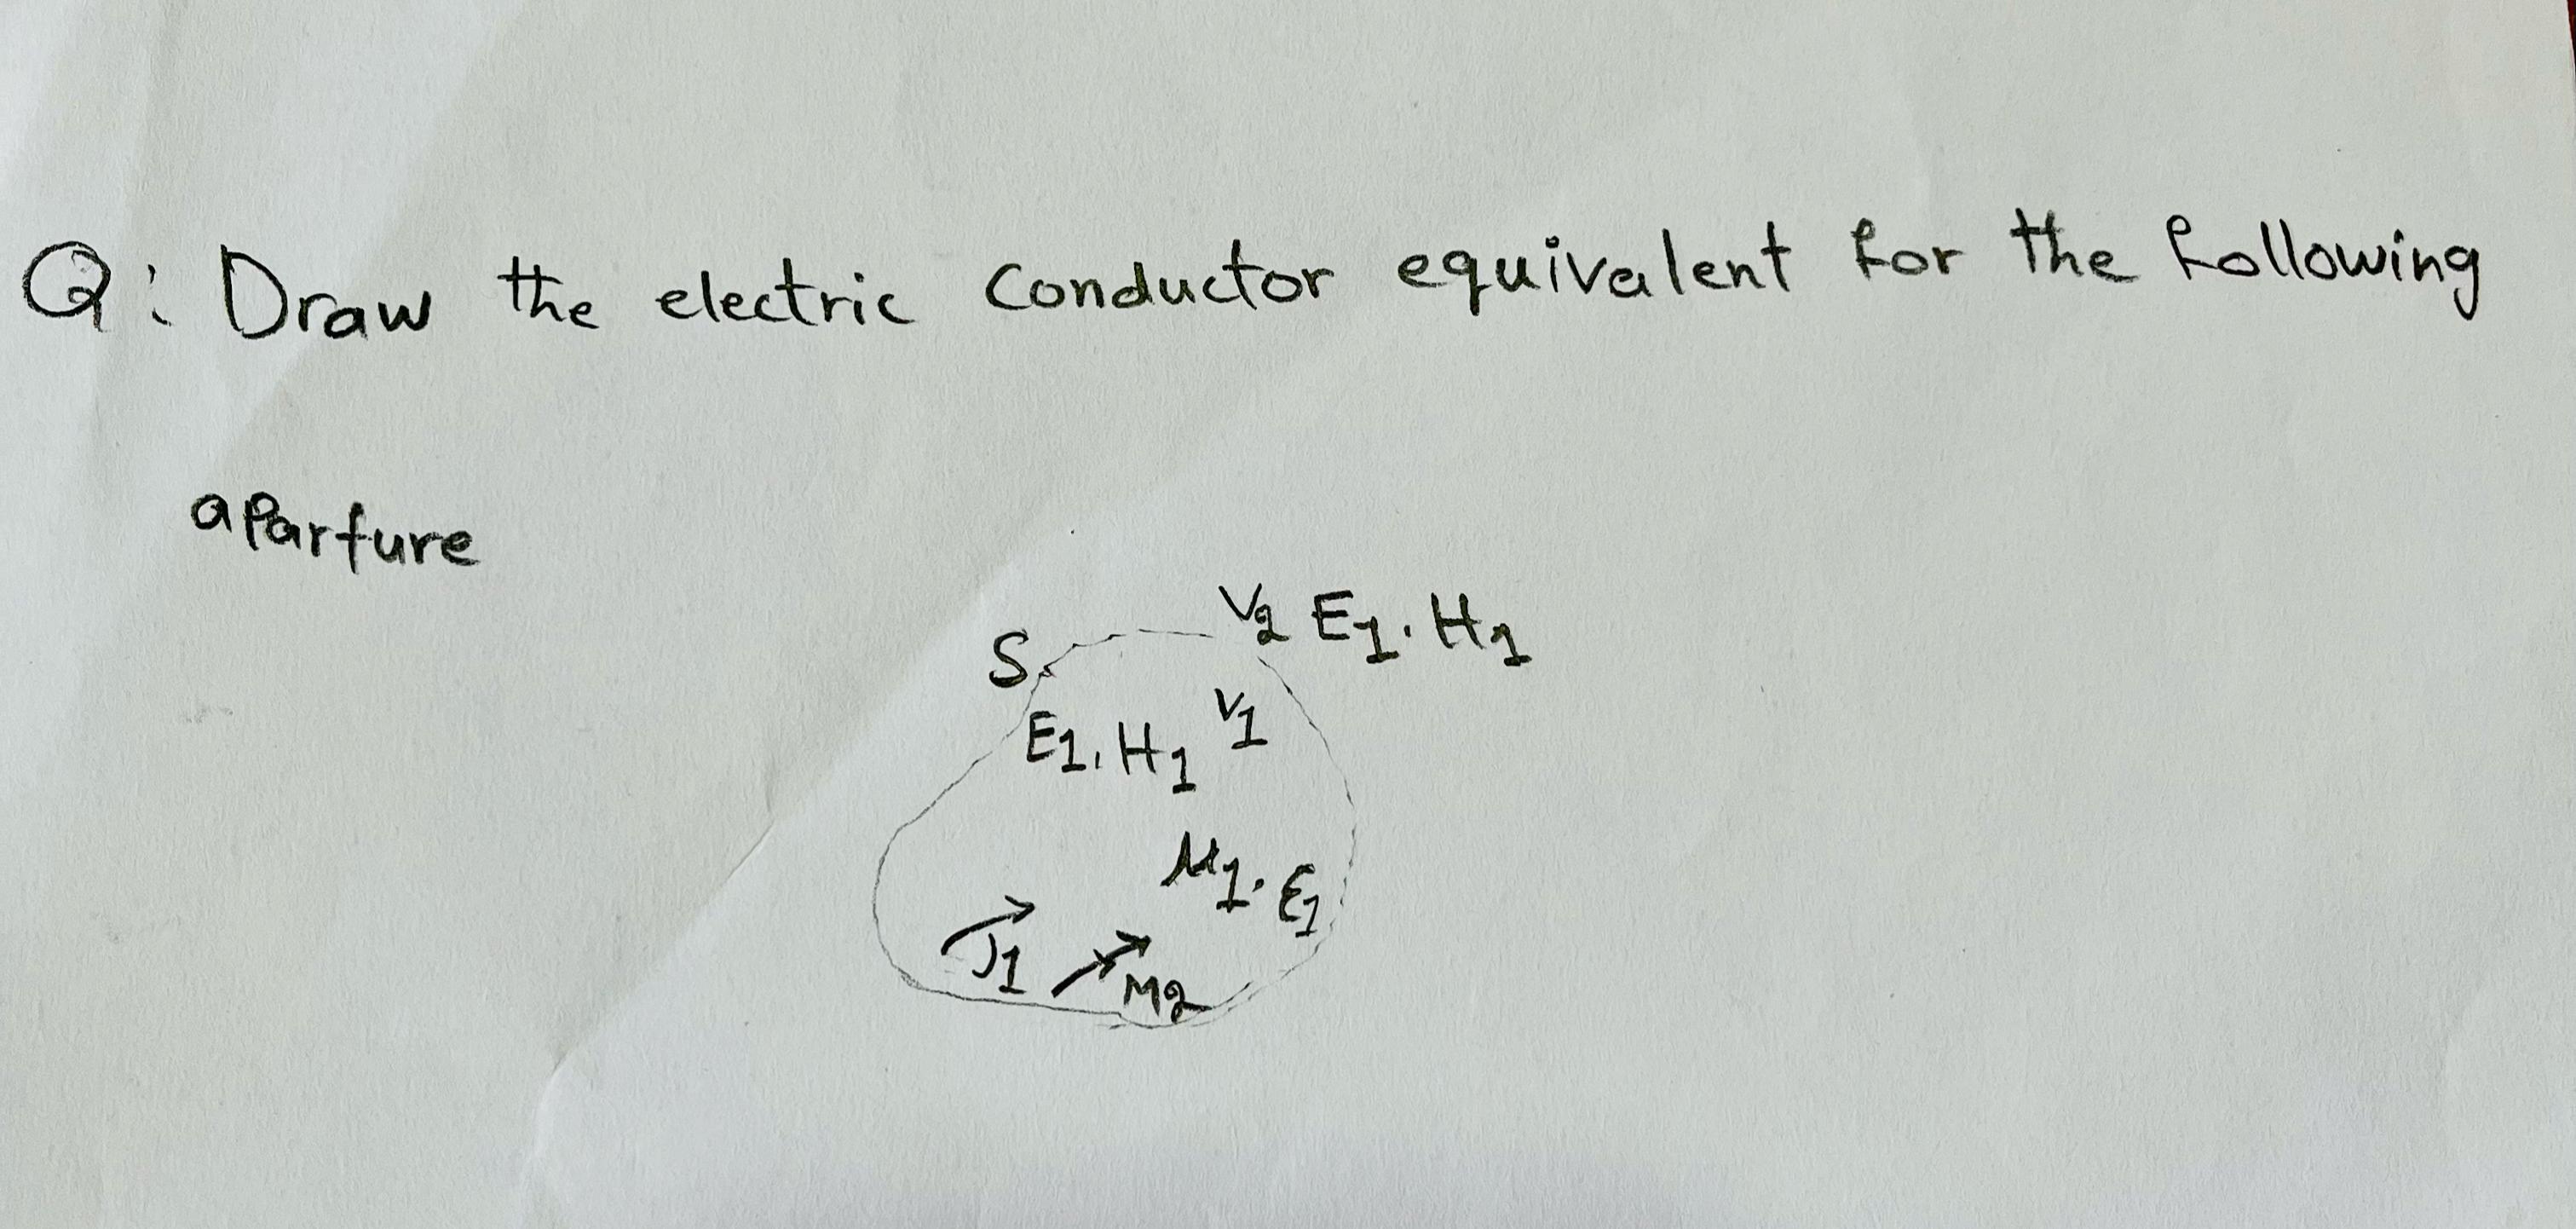 Q: Draw the electric conductor equivalent for the following
aparture
S V2 E1. H1
E1. H1 V1
μ1. ε1
J1 M2